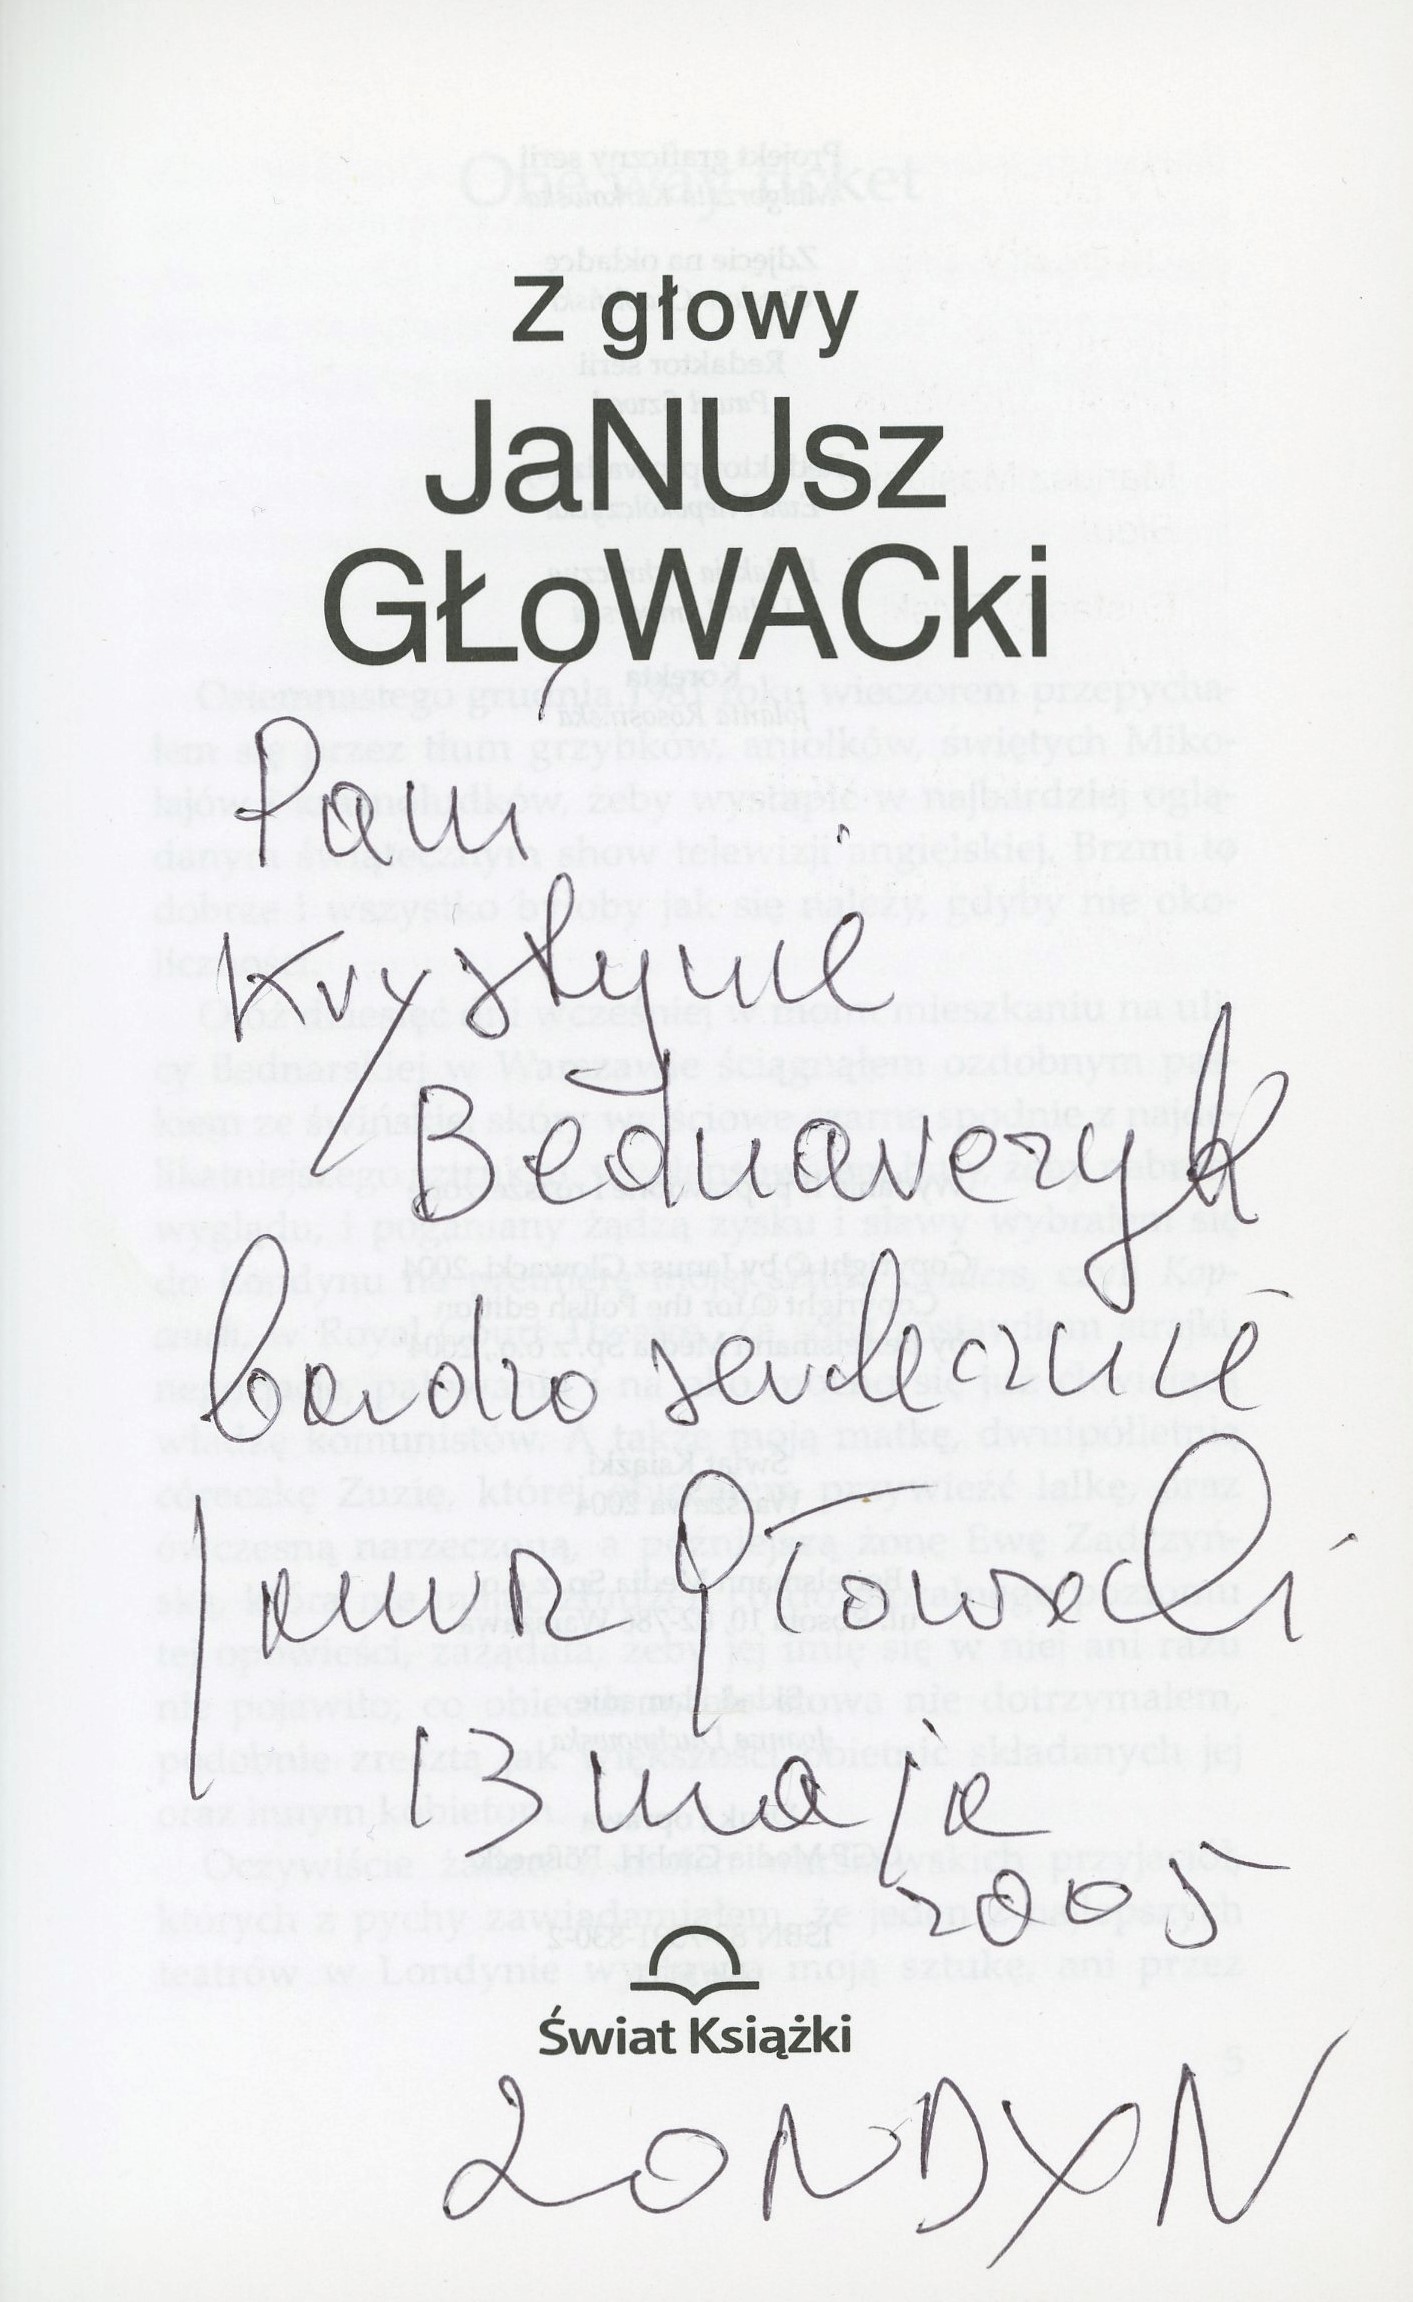 Z głowy
JaNUsz
GŁoWACki
Pani
Krystynie
Bednarczyk
bardzo serdecznie
Janusz Głowacki
13 maja
2005
Świat Książki
LONDYN